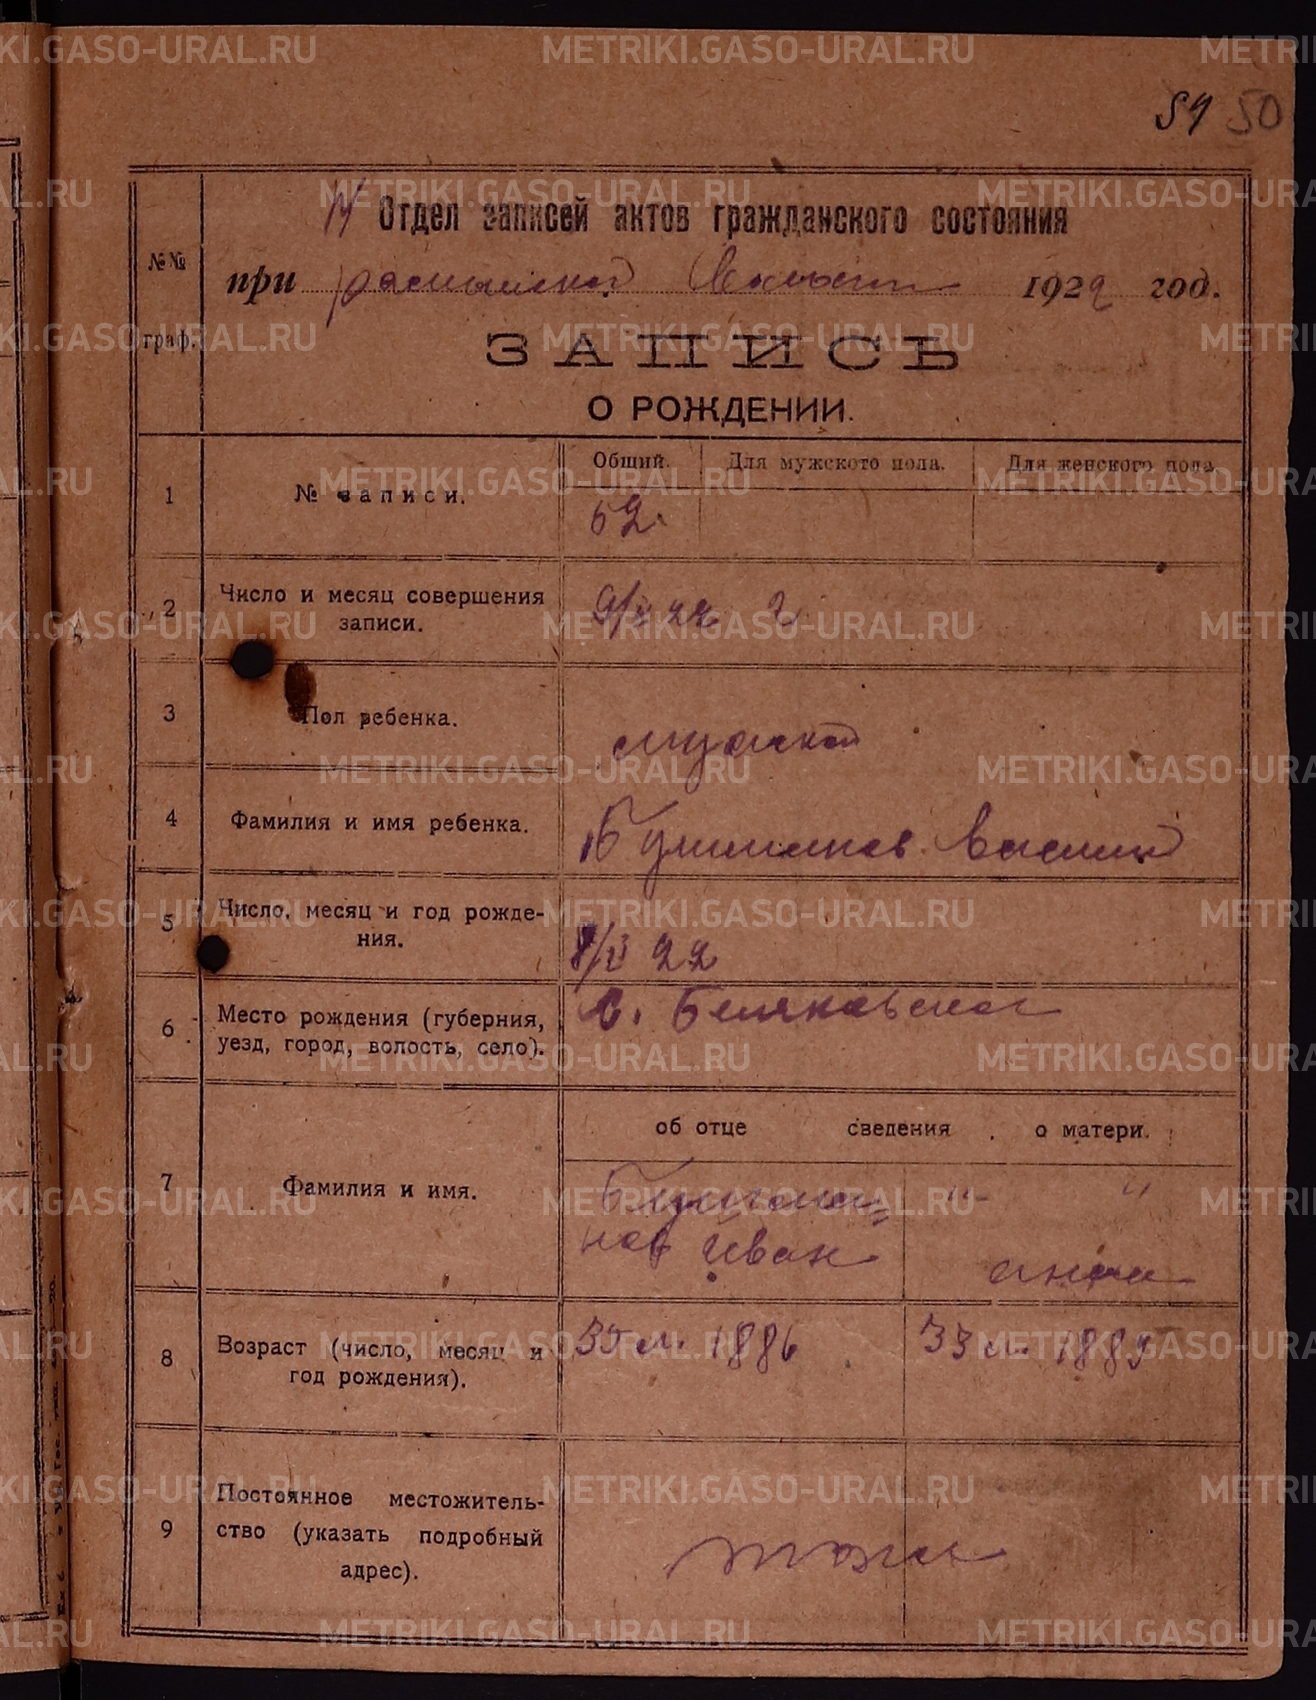 METRIKI.GASO-URAL.RU
50
Отдел записей актов гражданского состояния
№№ граф.
при волости 1922 год.
ЗАПИСЬ
О РОЖДЕНИИ.
Общий. Для мужского пола. Для женского пола.
1 № записи.
52.
2 Число и месяц совершения
записи.
22 г.
3 Пол ребенка.
мужской
4 Фамилия и имя ребенка.
Василий
5 Число, месяц и год рожде-
ния.
22
6 Место рождения (губерния,
уезд, город, волость, село).
с. Беляковское
об отце сведения о матери.
7 Фамилия и имя.
" "
нов Иван
Анна
8 Возраст (число, месяц и
год рождения).
35 л. 1886 33 л. 1889
9 Постоянное местожитель-
ство (указать подробный
адрес).
тоже